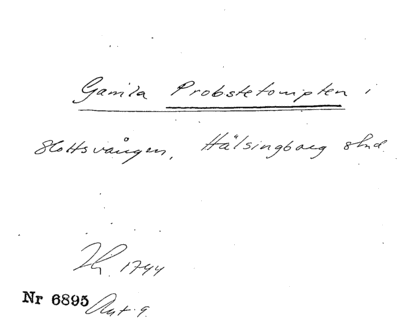 Gamla Probstetompten i
Slottsvången, Hälsingborg stad.
Th. 1744
Nr 6895 Aut. 9.